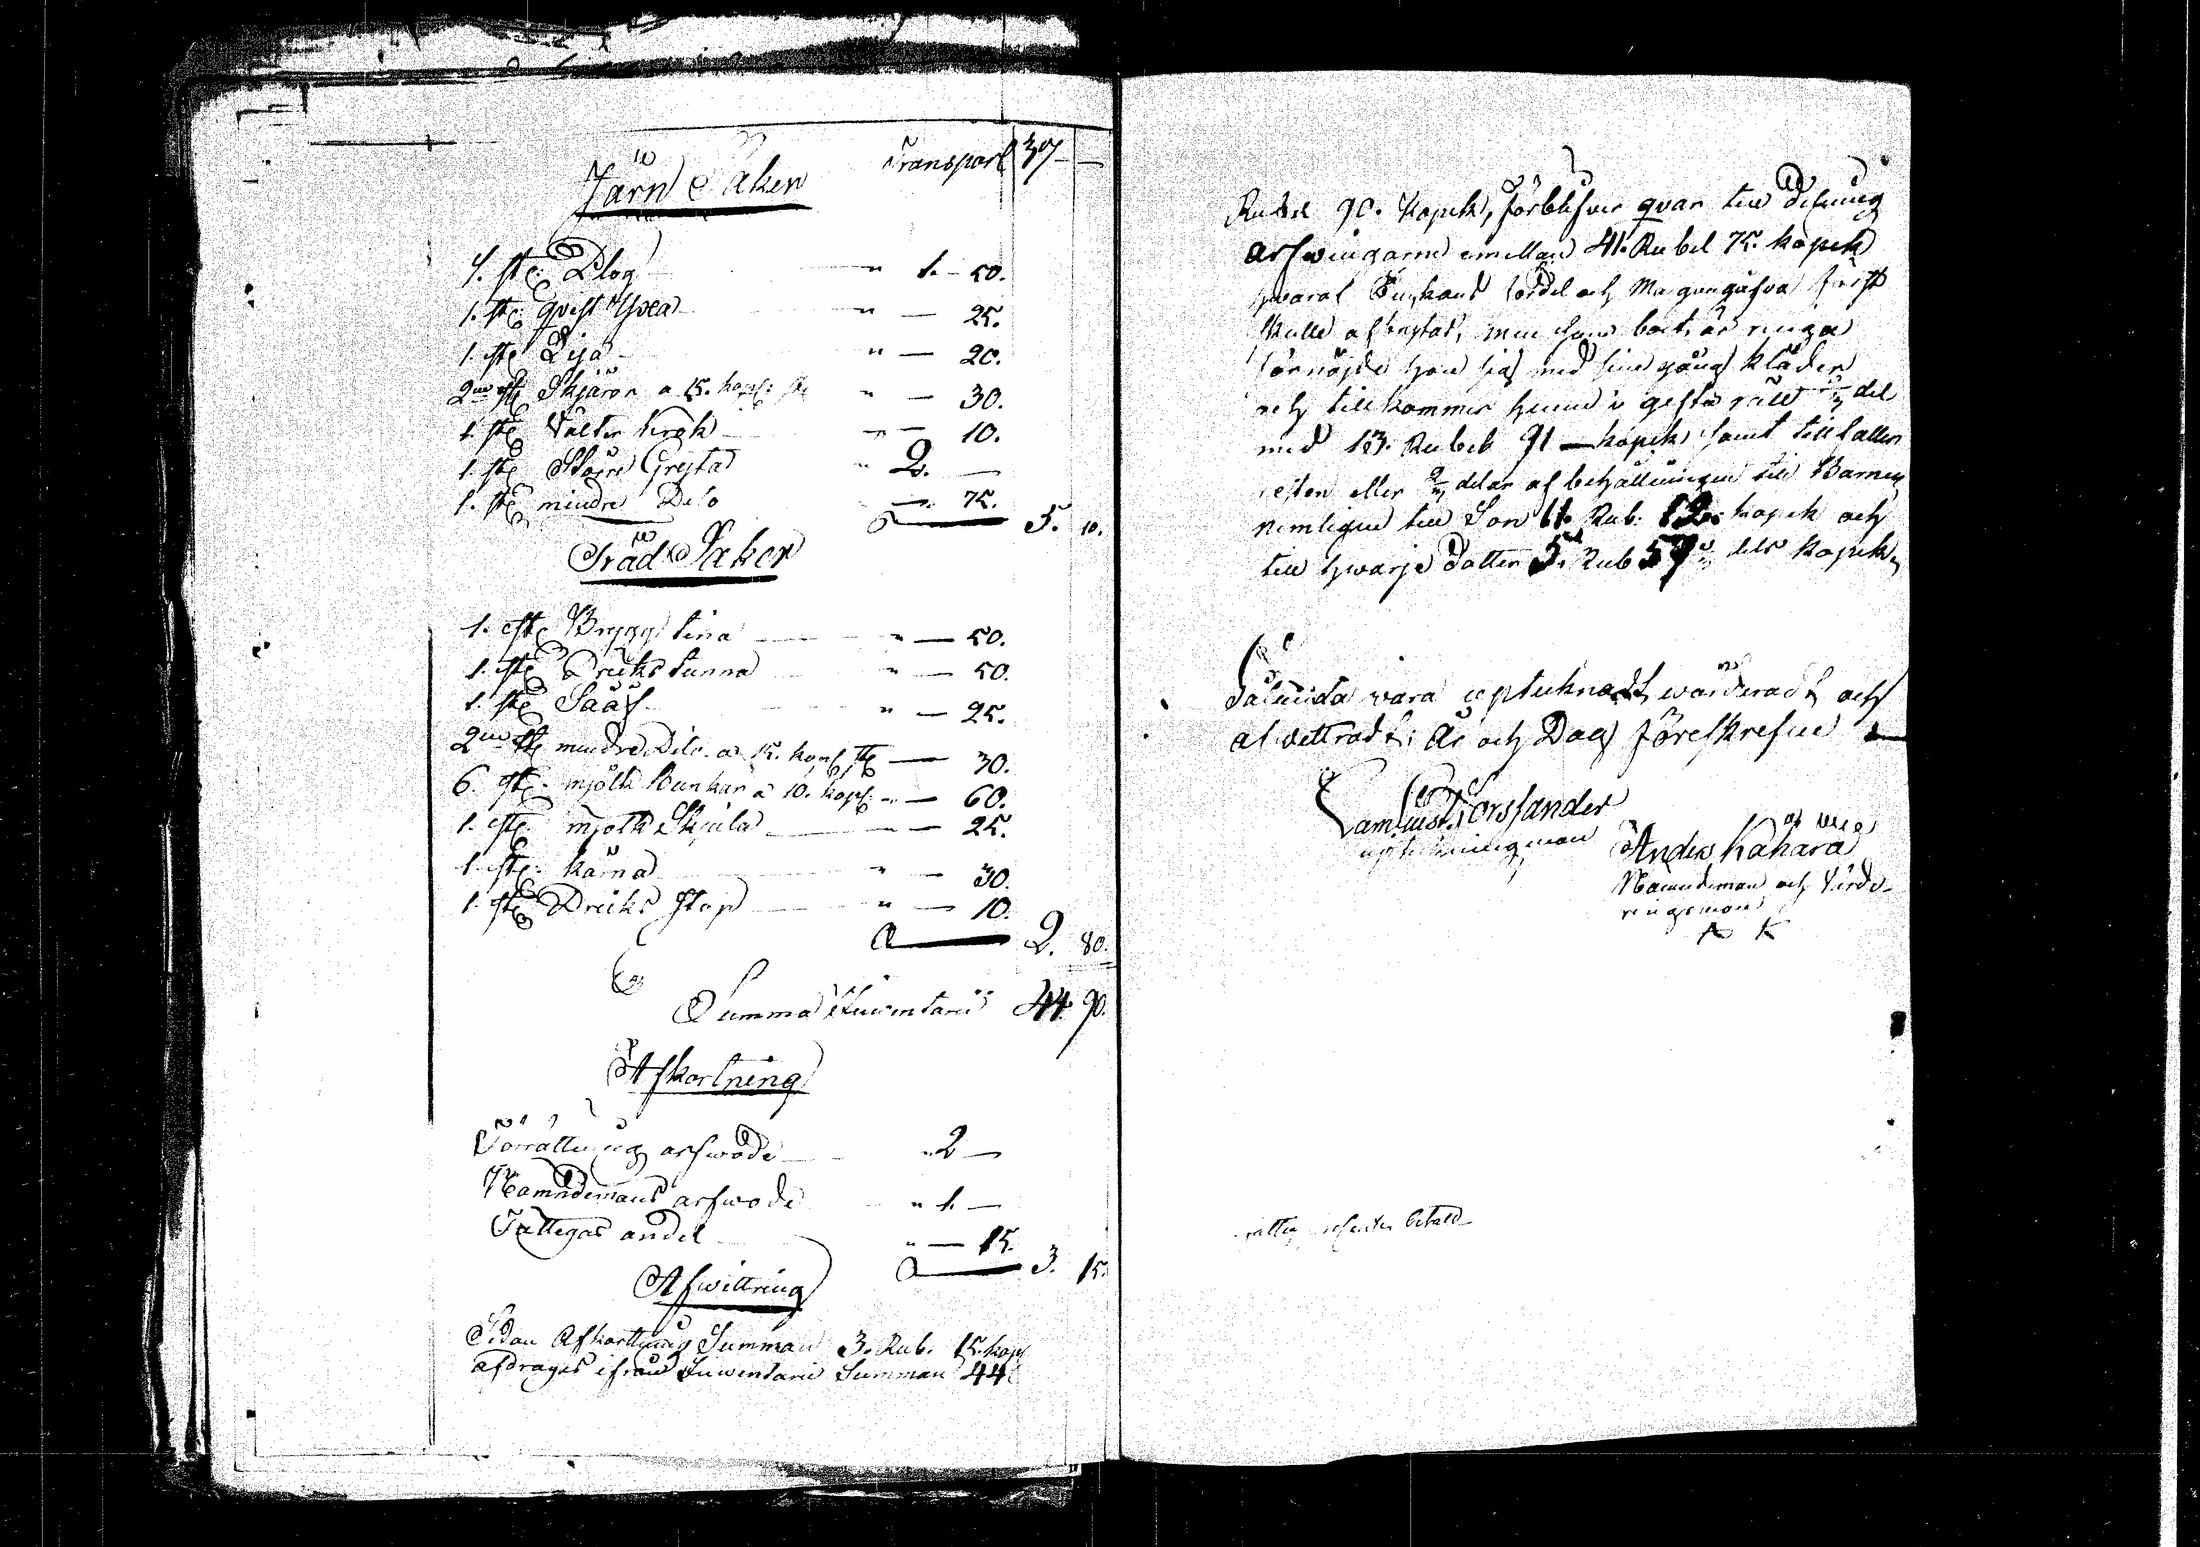 Transport 37 —
Järn Saker
1. st: Plog " 1. — 50.
1. st: qvist Yxa " — 25.
1. st: Lija " — 20.
2ne st: Skjäror a 15. kop: st: " — 30.
1. st: krok " — 10.
1. st: Större Gryta " 2. —
1. st: mindre Dito — 75.
5. 10.
Träd Saker
1. st: Brygg tina " — 50.
1. st: Dricks tunna " — 50.
1. st: Sååf " — 25.
2ne st: mindre Dito a 15. kop: st: — 30.
6. st: mjölk Bunkar a 10. kop: " — 60.
1. st: mjölk Skiula " — 25.
1. st: kärna " — 30.
1. st: Dricks stop " — 10.
2. 80.
Summa Inventarii 44. 90.
Afkortning
Förrättning arfwode " 2 —
Nämndemans arfwode " 1. —
Fattigas andel " — 15.
3. 15.
Afwittring
Sedan Afkortning Summan 3. Rub. 15. kop
afdrages ifrån Inwentarii Summan 44
Rubel 90. kopek, förblifver qvar till delning
arfwingarne emellan 41. Rubel 75. kopek
hwaraf Enkans fördel och Morgongåfva först
skulle afbrytas, men som boet är ringa
förnöjde hon sig med sina gång kläder
och tillkommer henne i gifto rätt 1/3 del
med 13. Rubel 91 — kopek, samt tillfaller
resten eller 2/3 delar af behållningen till Barnen
nemligen till Son 11. Rub: 12. kopek och
till hwarje Dotter 5. Rub 57 dels kopek,
Således vara uptecknadt, wärderadt och
afwittradt; År och Dag föreskrefne
Forssander
uptekningsman
Anders Kähärä
Nämndeman och Värde-
ringsman
A K
betald